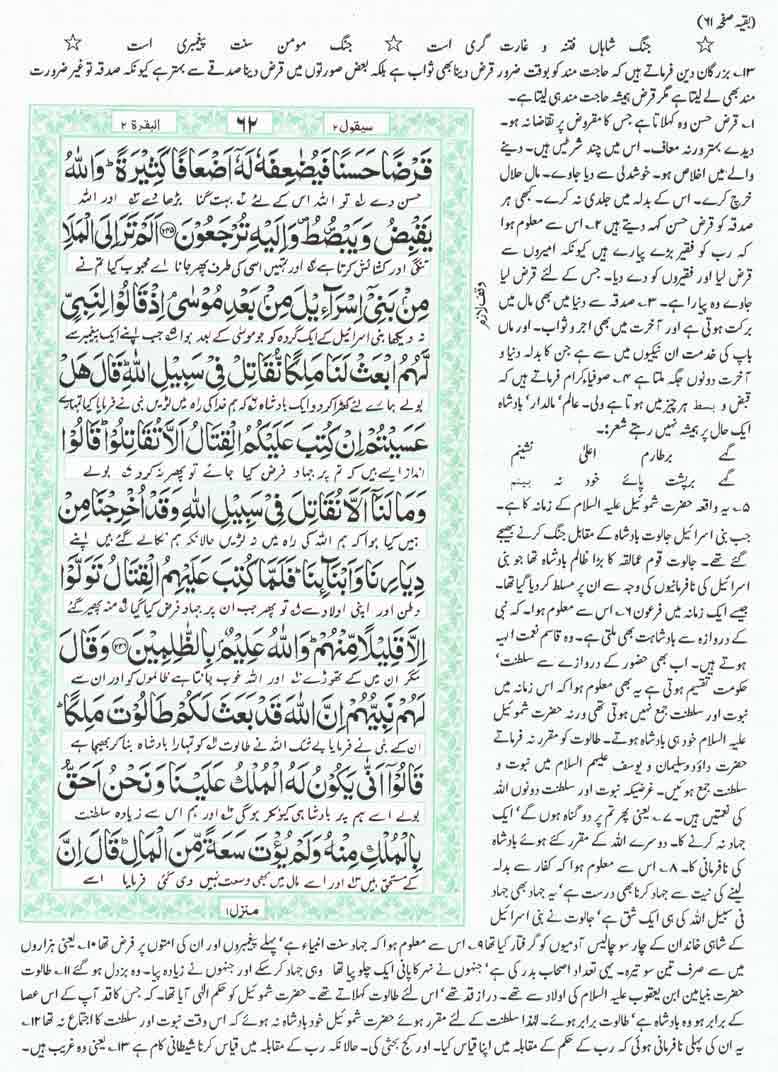 (بقیہ صفحہ ۶۱)
☆ جنگ شاہاں فتنہ و غارت گری است ☆ جنگ مومن سنت پیغمبری است ☆
۱۳۔ بزرگان دین فرماتے ہیں کہ حاجت مند کو بوقت ضرور قرض دینا بھی ثواب ہے بلکہ بعض صورتوں میں قرض دینا صدقے سے بہتر ہے کیونکہ صدقہ تو غیر ضرورت
مند بھی لے لیتا ہے مگر قرض ہمیشہ حاجت مند ہی لیتا ہے۔
۱۔ قرض حسن وہ کہلاتا ہے جس کا مقروض پر تقاضا نہ ہو۔
دیدے بہتر ورنہ معاف۔ اس میں چند شرطیں ہیں۔ دینے
والے میں اخلاص ہو۔ خوشدلی سے دیا جاوے۔ مال حلال
خرچ کرے۔ اس کے بدلہ میں جلدی نہ کرے۔ کبھی ہر
صدقہ کو قرض حسن کہہ دیتے ہیں ۲۔ اس سے معلوم ہوا
کہ رب کو فقیر بڑے پیارے ہیں کیونکہ امیروں سے
قرض لیا اور فقیروں کو دے دیا۔ جس کے لئے قرض لیا
جاوے وہ پیارا ہے۔ ۳۔ صدقہ سے دنیا میں بھی مال میں
برکت ہوتی ہے اور آخرت میں بھی اجر و ثواب۔ اور ماں
باپ کی خدمت ان نیکیوں میں سے ہے جن کا بدلہ دنیا و
آخرت دونوں جگہ ملتا ہے ۴۔ صوفیاء کرام فرماتے ہیں کہ
قبض و بسط ہر چیز میں ہوتا ہے ولی۔ عالم' مالدار' بادشاہ
ایک حال پر ہمیشہ نہیں رہتے شعر:۔
گہے برطارم اعلیٰ نشینم
گہے برپشت پائے خود نہ بینم
۵۔ یہ واقعہ حضرت شموئیل علیہ السلام کے زمانہ کا ہے۔
جب بنی اسرائیل جالوت بادشاہ کے مقابل جنگ کرنے بھیجے
گئے تھے۔ جالوت قوم عمالقہ کا بڑا ظالم بادشاہ تھا جو بنی
اسرائیل کی نافرمانیوں کی وجہ سے ان پر مسلط کر دیا گیا تھا۔
جیسے ایک زمانہ میں فرعون ۶۔ اس سے معلوم ہوا۔ کہ نبی
کے دروازہ سے بادشاہت بھی ملتی ہے۔ وہ قاسم نعمت الہیہ
ہوتے ہیں۔ اب بھی حضور کے دروازے سے سلطنت'
حکومت تقسیم ہوتی ہے یہ بھی معلوم ہوا کہ اس زمانہ میں
نبوت اور سلطنت جمع نہیں ہوتی تھی ورنہ حضرت شموئیل
علیہ السلام خود ہی بادشاہ ہوتے۔ طالوت کو مقرر نہ فرماتے
حضرت داؤد و سلیمان و یوسف علیہم السلام میں نبوت و
سلطنت جمع ہوئیں۔ غرضیکہ نبوت اور سلطنت دونوں اللہ
کی نعمتیں ہیں۔ ۷۔ یعنی پھر تم پر دو گناہ ہوں گے' ایک
جہاد نہ کرنے کا۔ دوسرے اللہ کے مقرر کئے ہوئے بادشاہ
کی نافرمانی کا۔ ۸۔ اس سے معلوم ہوا کہ کفار سے بدلہ
لینے کی نیت سے جہاد کرنا بھی درست ہے' یہ جہاد بھی جہاد
فی سبیل اللہ کی ہی ایک شق ہے' جالوت نے بنی اسرائیل
سیقول ۲ ۶۲ البقرة ۲
قَرْضًا حَسَنًا فَيُضٰعِفَهٗ لَهٗۤ اَضْعَافًا كَثِيْرَةً ؕ وَاللّٰهُ
حسن دے تو اللہ اس کے لئے بہت گنا بڑھا دے اور اللہ
يَقْبِضُ وَيَبْصُۜطُ ۪ وَاِلَيْهِ تُرْجَعُوْنَ ﴿۲۴۵﴾ اَلَمْ تَرَ اِلَى الْمَلَاِ
تنگی اور کشائش کرتا ہے اور تمہیں اسی کی طرف پھر جانا اے محبوب کیا تم نے
مِنْۢ بَنِيْۤ اِسْرَآءِيْلَ مِنْۢ بَعْدِ مُوْسٰى ۘ اِذْ قَالُوْا لِنَبِيٍّ
نہ دیکھا بنی اسرائیل کے ایک گروہ کو جو موسٰی کے بعد ہوا جب اپنے ایک پیغمبر سے
وقف لازم
لَّهُمُ ابْعَثْ لَنَا مَلِكًا نُّقَاتِلْ فِيْ سَبِيْلِ اللّٰهِ ؕ قَالَ هَلْ
بولے ہمارے لئے کھڑا کر دو ایک بادشاہ کہ ہم خدا کی راہ میں لڑیں نبی نے فرمایا کیا تمہارے
عَسَيْتُمْ اِنْ كُتِبَ عَلَيْكُمُ الْقِتَالُ اَلَّا تُقَاتِلُوْا ؕ قَالُوْا
انداز ایسے ہیں کہ تم پر جہاد فرض کیا جائے تو پھر نہ کرو بولے
وَمَا لَنَاۤ اَلَّا نُقَاتِلَ فِيْ سَبِيْلِ اللّٰهِ وَقَدْ اُخْرِجْنَا مِنْ
ہمیں کیا ہوا کہ ہم اللہ کی راہ میں نہ لڑیں حالانکہ ہم نکالے گئے ہیں اپنے
دِيَارِنَا وَاَبْنَآئِنَا ؕ فَلَمَّا كُتِبَ عَلَيْهِمُ الْقِتَالُ تَوَلَّوْا
وطن اور اپنی اولاد سے تو پھر جب ان پر جہاد فرض کیا گیا منہ پھیر گئے
اِلَّا قَلِيْلًا مِّنْهُمْ ؕ وَاللّٰهُ عَلِيْمٌۢ بِالظّٰلِمِيْنَ ﴿۲۴۶﴾ وَقَالَ
مگر ان میں کے تھوڑے اور اللہ خوب جانتا ہے ظالموں کو اور ان سے
لَهُمْ نَبِيُّهُمْ اِنَّ اللّٰهَ قَدْ بَعَثَ لَكُمْ طَالُوْتَ مَلِكًا ؕ
ان کے نبی نے فرمایا بے شک اللہ نے طالوت کو تمہارا بادشاہ بنا کر بھیجا ہے
قَالُوْۤا اَنّٰى يَكُوْنُ لَهُ الْمُلْكُ عَلَيْنَا وَنَحْنُ اَحَقُّ
بولے اسے ہم پر بادشاہی کیونکر ہوگی اور ہم اس سے زیادہ سلطنت
بِالْمُلْكِ مِنْهُ وَلَمْ يُؤْتَ سَعَةً مِّنَ الْمَالِ ؕ قَالَ اِنَّ
کے مستحق ہیں اور اسے مال میں بھی وسعت نہیں دی گئی فرمایا اسے
منزل ۱
کے شاہی خاندان کے چار سو چالیس آدمیوں کو گرفتار کیا تھا ۹۔ اس سے معلوم ہوا کہ جہاد سنت انبیاء ہے' پہلے پیغمبروں اور ان کی امتوں پر فرض تھا ۱۰۔ یعنی ہزاروں
میں سے صرف تین سو تیرہ۔ یہی تعداد اصحاب بدر کی ہے' جنہوں نے نہر کا پانی ایک چلو پیا تھا وہی جہاد کر سکے اور جنہوں نے زیادہ پیا۔ وہ بزدل ہو گئے ۱۱۔ طالوت
حضرت بنیامین ابن یعقوب علیہ السلام کی اولاد سے تھے۔ دراز قد تھے' اس لئے طالوت کہلاتے تھے۔ حضرت شموئیل کو حکم الٰہی آیا تھا۔ کہ جس کا قد آپ کے اس عصا
کے برابر ہو وہ بادشاہ ہے' طالوت برابر ہوئے۔ لہٰذا سلطنت کے لئے مقرر ہوئے حضرت شموئیل خود بادشاہ نہ ہوئے کہ اس وقت نبوت اور سلطنت کا اجتماع نہ تھا ۱۲۔
یہ ان کی پہلی نافرمانی ہوئی کہ رب کے حکم کے مقابلہ میں اپنا قیاس کیا۔ اور کج بحثی کی۔ حالانکہ رب کے مقابلہ میں قیاس کرنا شیطانی کام ہے ۱۳۔ یعنی وہ غریب ہیں۔